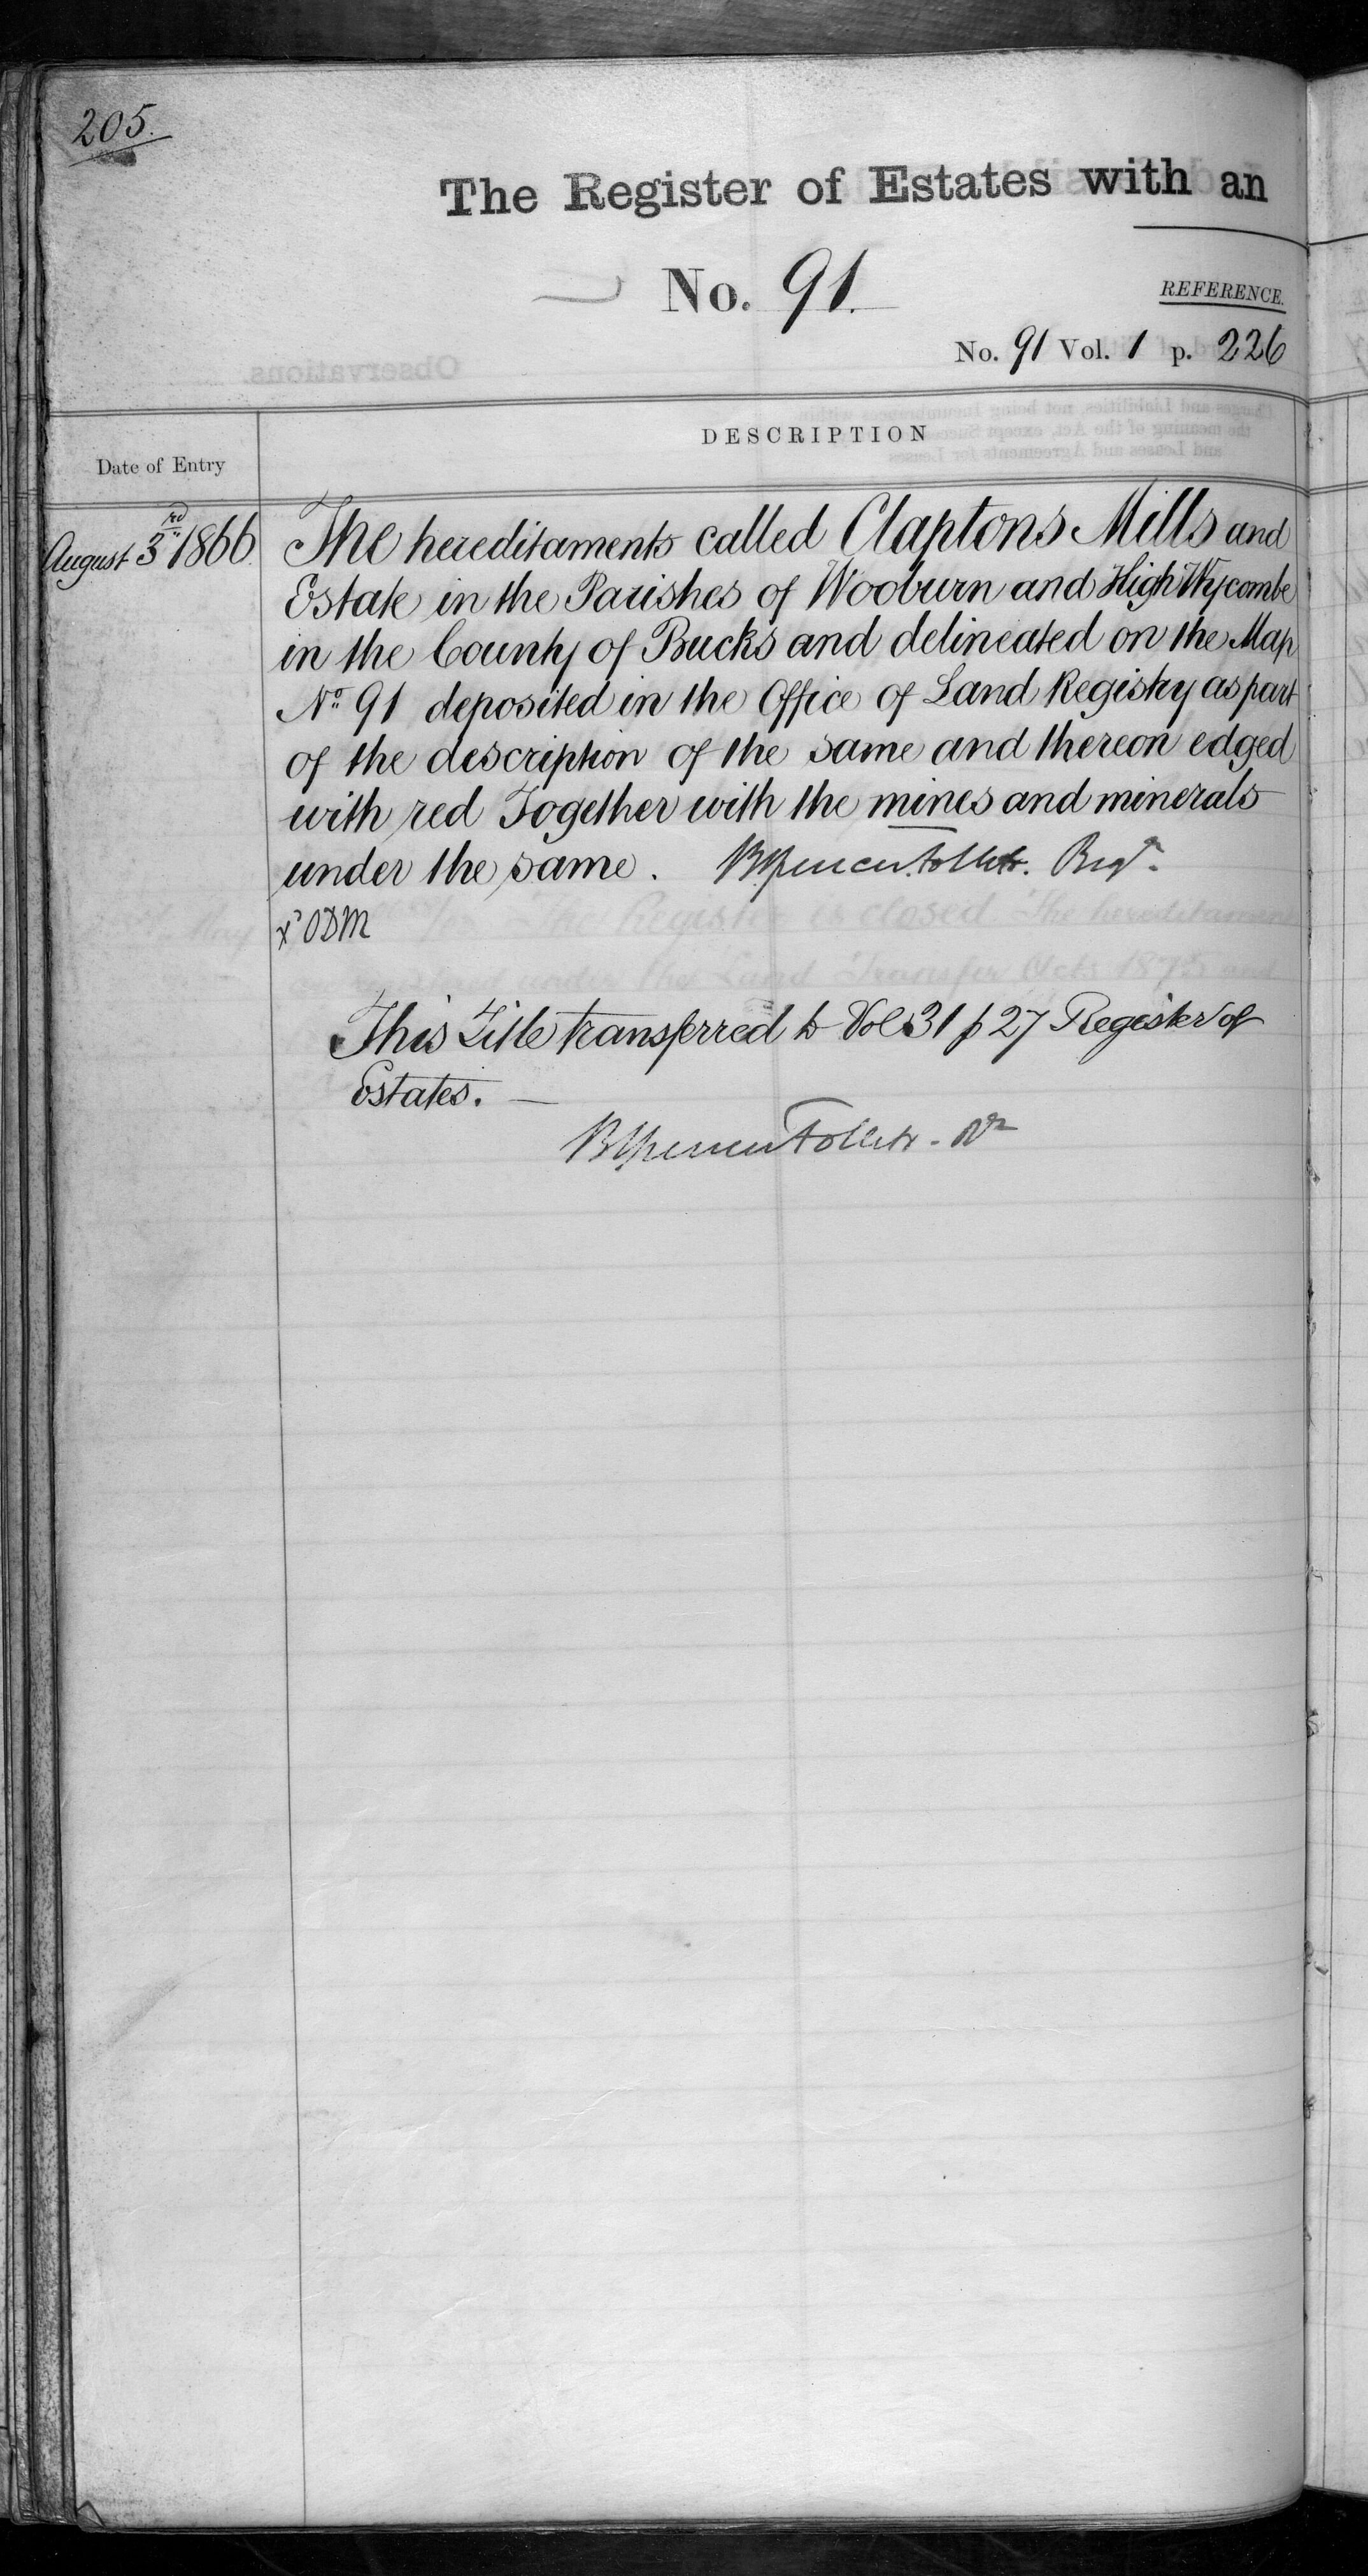 205.
The Register of Estates with an
No. 91.
REFERENCE.
No. 91 Vol. 1 p. 226
Date of Entry
DESCRIPTION
August 3rd 1866
The hereditaments called Claptons Mills and
Estate in the Parishes of Wooburn and High Wycombe
in the County of Bucks and delineated on the Map
No 91 deposited in the Office of Land Registry as part
of the description of the same and thereon edged
with red Together with the mines and minerals
under the same. BSpencer Follett. Regr.
xd ODM
The Register is closed The hereditaments
under the Land Transfer Acts 1875 and
This Title transferred to Vol 31 p 27 Register of
Estates.
BSpencer Follett - Rr